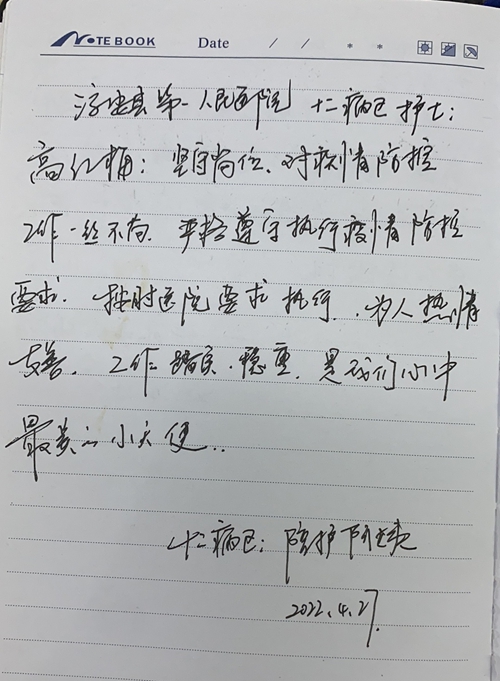 NOTE BOOK Date / / * *
县第一人民医院 十二病区护士:
高红梅: 坚守岗位、对疫情防控
工作一丝不苟. 严格遵守执行疫情防控
要求. 按时医院要求执行. 为人热情
友善. 工作踏实. 稳重. 是我们心中
最美的小天使..
十二病区: 陪护
2022.4.27.